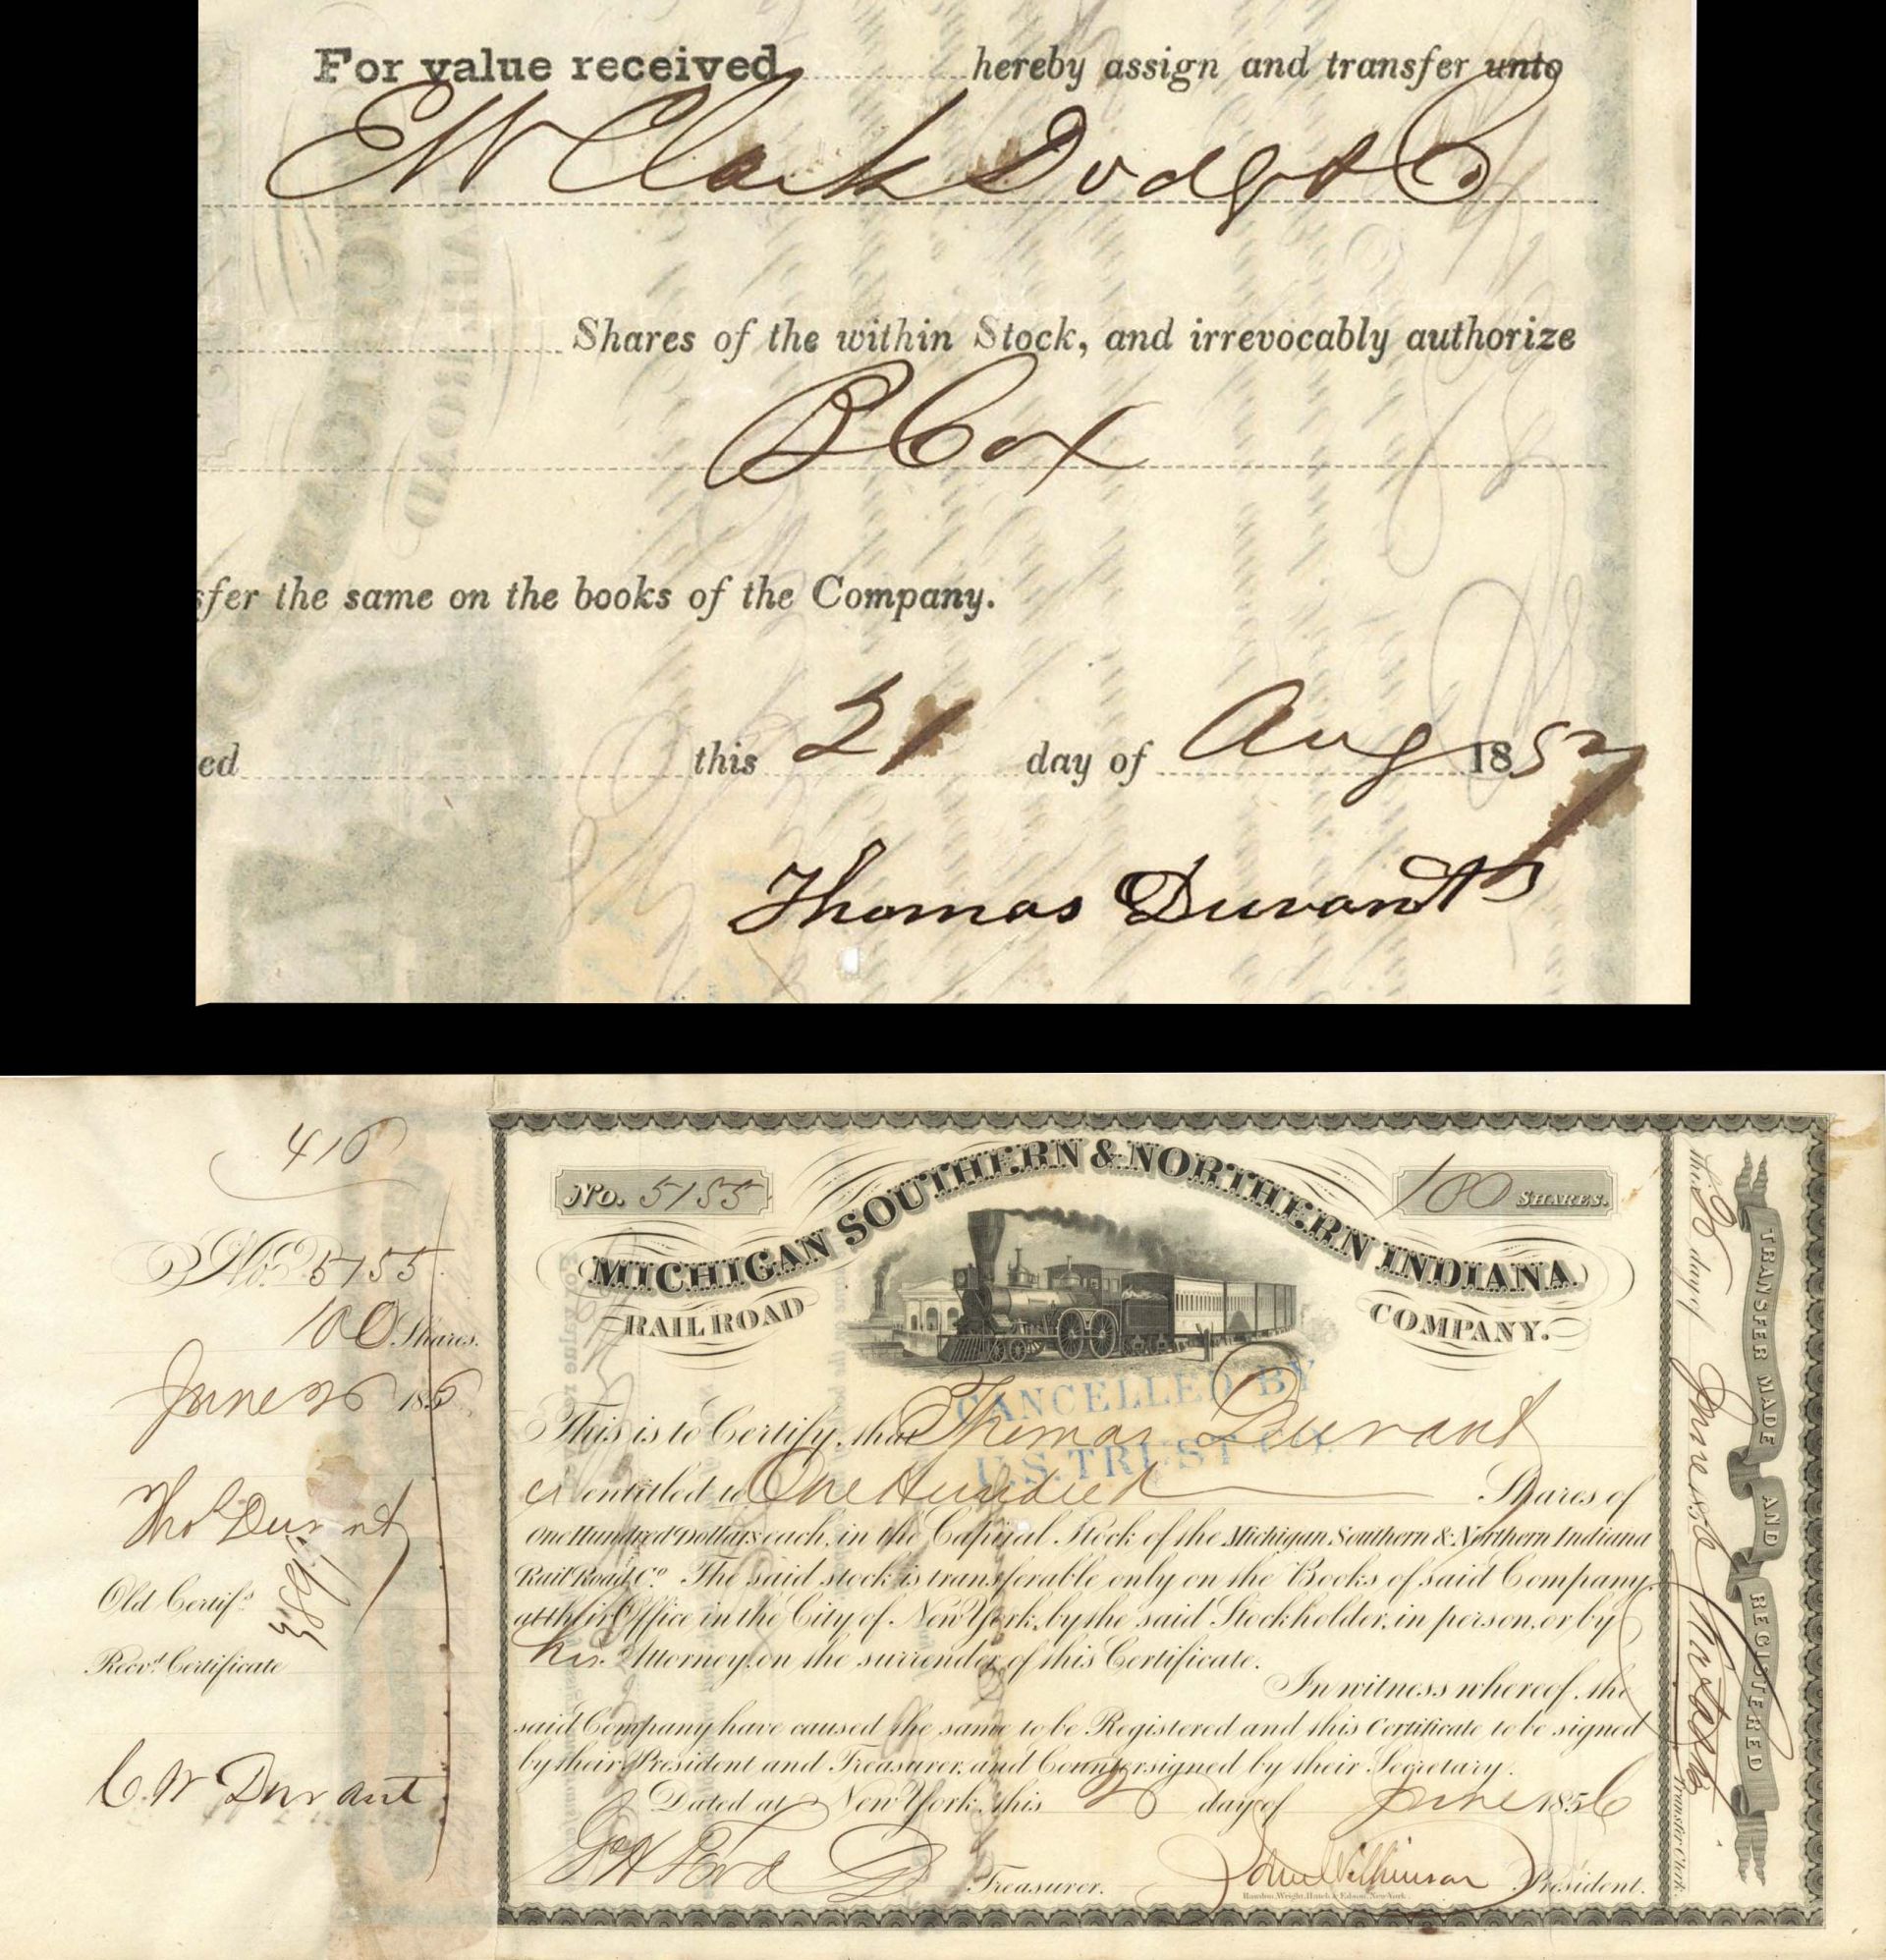 For value received hereby assign and transfer unto
E W Clark Dodge & Co
Shares of the within Stock, and irrevocably authorize
B Cox
sfer the same on the books of the Company.
ed this 21 day of Aug 1857
Thomas Durant
416
No. 5155
100 Shares.
June 26 1856
Thos Durant
Old Certifs
Recvd Certificate
C. W Durant
No. 5155
100 SHARES.
MICHIGAN SOUTHERN & NORTHERN INDIANA
RAIL ROAD COMPANY.
CANCELLED BY
U.S. TRUST CO.
This is to Certify, that Thomas Durant
is entitled to One Hundred Shares of
One Hundred Dollars each, in the Capital Stock of the Michigan Southern & Northern Indiana
Rail Road Co. The said stock is transferable only on the Books of said Company,
at their Office in the City of New York, by the said Stockholder, in person, or by
his Attorney, on the surrender of this Certificate.
In witness whereof, the
said Company have caused the same to be Registered and this Certificate to be signed
by their President and Treasurer, and Countersigned by their Secretary.
Dated at New York, this 26 day of June 1856
Treasurer.
John Wilkinson President.
Rawdon, Wright, Hatch & Edson, New York.
this 26 day of June 1856
Transfer Clerk.
TRANSFER MADE AND REGISTERED